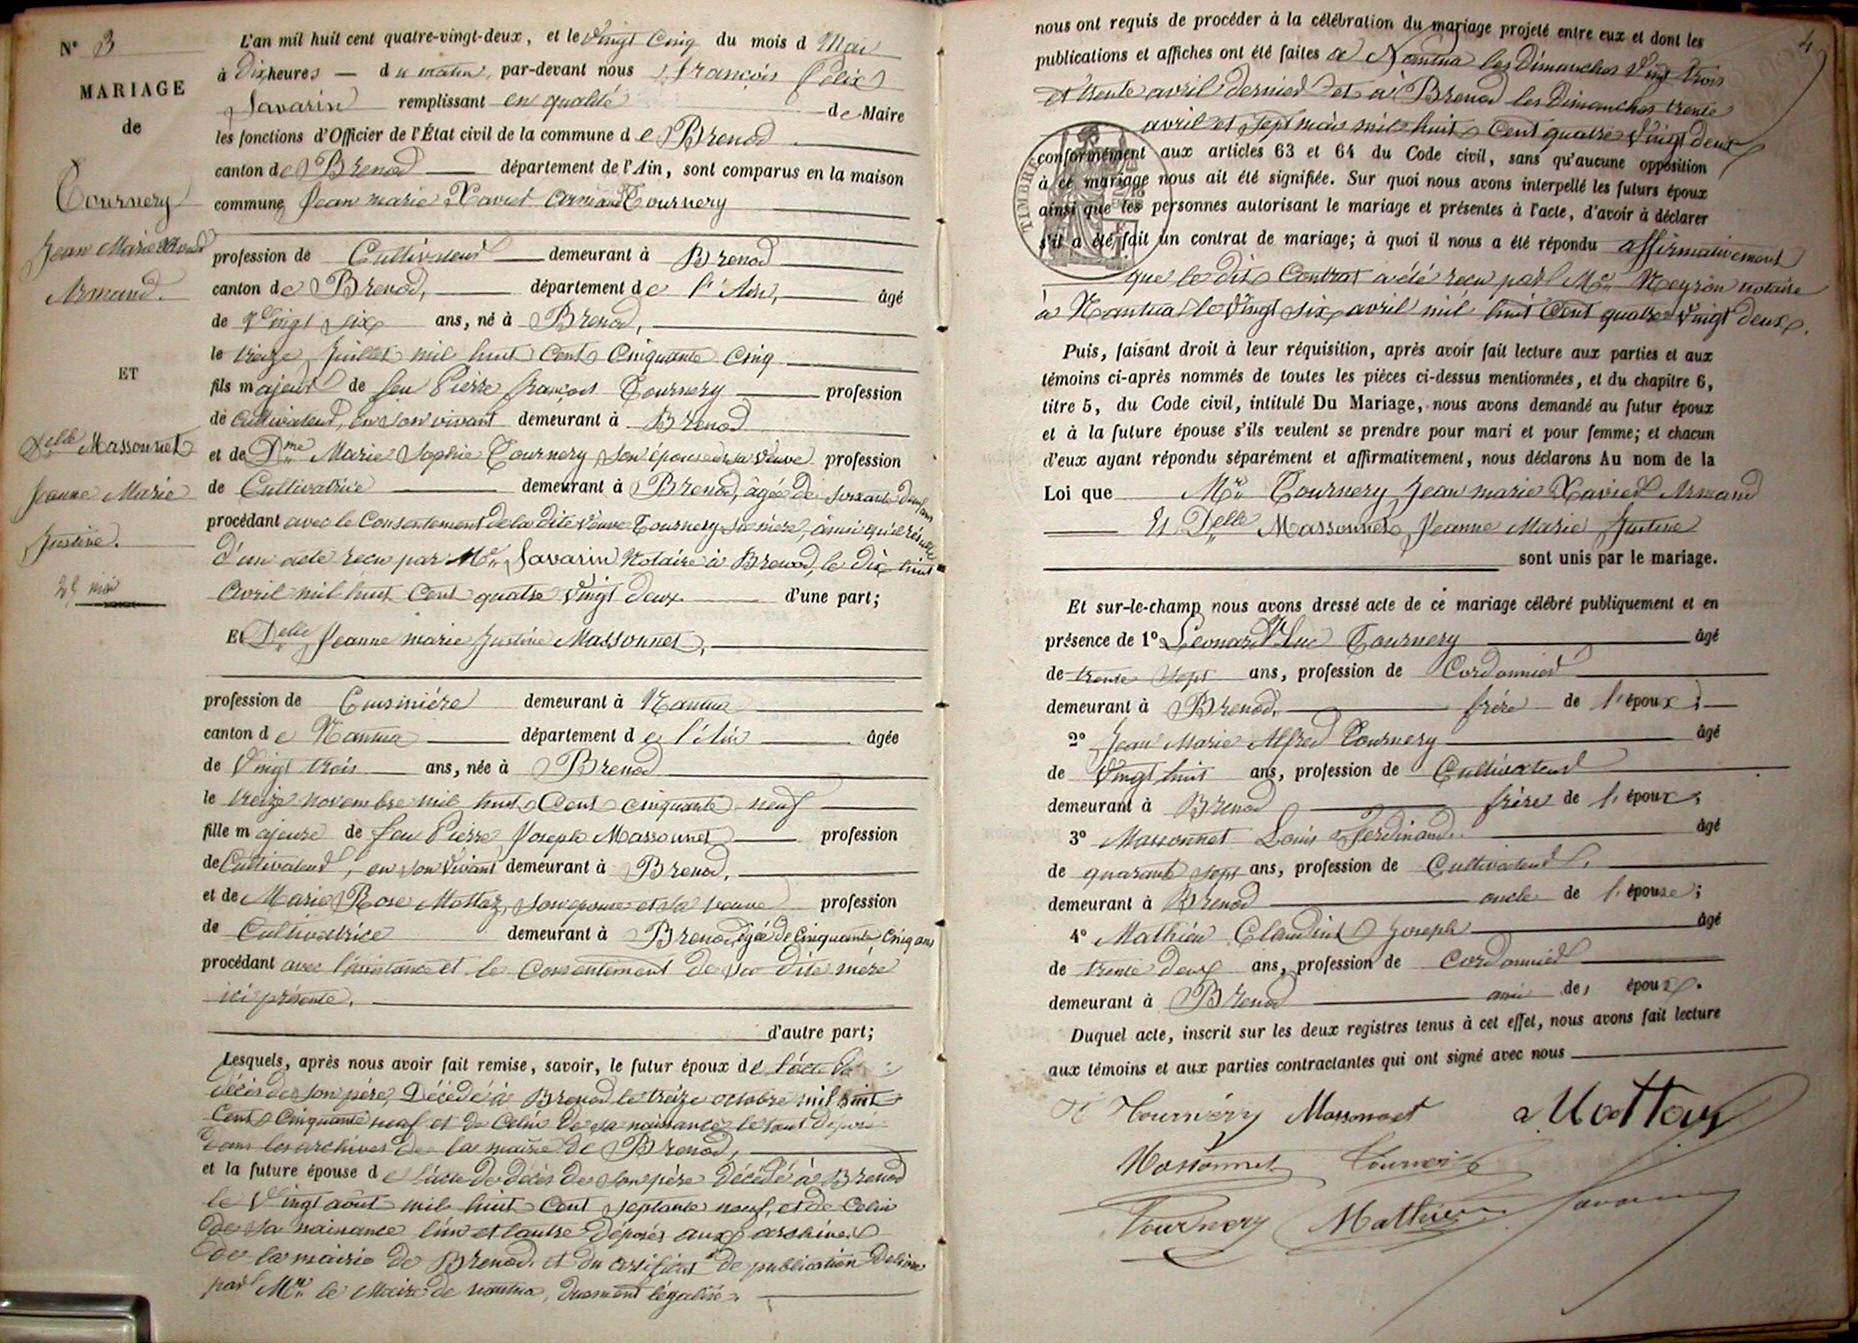 N° 3
MARIAGE
de
Tournery
Jean Marie Xavier
Armand.
ET
Delle Massonnet
Jeanne Marie
Justine.
25 mai
L'an mil huit cent quatre-vingt-deux, et le Vingt Cinq du mois d Mai
à dix heures — du matin, par-devant nous François félix
Savarin remplissant en qualité de Maire
les fonctions d'Officier de l'État civil de la commune de Brenod
canton de Brenod département de l'Ain, sont comparus en la maison
commune Jean marie Xavier Armand Tournery
profession de Cultivateur demeurant à Brenod
canton de Brenod, département de l'Ain, âgé
de Vingt six ans, né à Brenod,
le treize Juillet mil huit Cent Cinquante Cinq
fils majeur de feu Pierre françois Tournery profession
de Cultivateur, en son vivant demeurant à Brenod
et de Dme Marie Sophie Tournery, son épouse et sa veuve profession
de Cultivatrice demeurant à Brenod, âgée de soixante deux ans
procédant avec le Consentement de la dite veuve Tournery sa mère, ainsi qu'il résulte
d'un acte reçu par Me Savarin Notaire à Brenod, le dix huit
avril mil huit Cent quatre Vingt deux d'une part;
Et Delle Jeanne marie Justine Massonnet,
profession de Cuisinière demeurant à Nantua
canton de Nantua département de l'Ain âgée
de Vingt trois ans, née à Brenod
le treize novembre mil huit Cent cinquante neuf
fille majeure de feu Pierre Joseph Massonnet profession
de Cultivateur, en son vivant demeurant à Brenod,
et de Marie Rose Mottaz, son épouse et sa veuve profession
de Cultivatrice demeurant à Brenod, âgée de cinquante cinq ans
procédant avec l'assistance et le Consentement de sa dite mère
ici présente.
d'autre part;
Lesquels, après nous avoir fait remise, savoir, le futur époux de l'acte de
décès de son père, Décédé à Brenod le treize octobre mil huit
Cent Cinquante neuf et de Celui de sa naissance le tout déposé
dans les archives de la mairie de Brenod,
et la future épouse de l'acte de décès de son père décédé à Brenod
le Vingt août mil huit Cent septante neuf, et de Celui
de sa naissance l'un et l'autre déposés aux archives
de la mairie de Brenod. et du certificat de publication délivré
par Mr le Maire de nantua, duement légalisé.
4
nous ont requis de procéder à la célébration du mariage projeté entre eux et dont les
publications et affiches ont été faites à Nantua les Dimanches Vingt trois
et trente avril dernier et à Brenod les Dimanches trente
avril et sept mai mil huit Cent quatre Vingt deux
conformément aux articles 63 et 64 du Code civil, sans qu'aucune opposition
à ce mariage nous ait été signifiée. Sur quoi nous avons interpellé les futurs époux
ainsi que les personnes autorisant le mariage et présentes à l'acte, d'avoir à déclarer
s'il a été fait un contrat de mariage; à quoi il nous a été répondu affirmativement
que le dit Contrat a été reçu par Me Neyron notaire
à Nantua le Vingt six avril mil huit Cent quatre Vingt deux.
TIMBRE
Puis, faisant droit à leur réquisition, après avoir fait lecture aux parties et aux
témoins ci-après nommés de toutes les pièces ci-dessus mentionnées, et du chapitre 6,
titre 5, du Code civil, intitulé Du Mariage, nous avons demandé au futur époux
et à la future épouse s'ils veulent se prendre pour mari et pour femme; et chacun
d'eux ayant répondu séparément et affirmativement, nous déclarons Au nom de la
Loi que Mr Tournery Jean marie Xavier Armand
Et Delle Massonnet Jeanne Marie Justine
sont unis par le mariage.
Et sur-le-champ nous avons dressé acte de ce mariage célébré publiquement et en
présence de 1° Léonard Luc Tournery âgé
de trente sept ans, profession de Cordonnier
demeurant à Brenod, frère de l'époux;
2° Jean Marie Alfred Tournery âgé
de Vingt huit ans, profession de Cultivateur
demeurant à Brenod frère de l'époux;
3° Massonnet Louis Ferdinand. âgé
de quarante sept ans, profession de Cultivateur,
demeurant à Brenod oncle de l'épouse;
4° Mathieu Claudius Joseph âgé
de trente deux ans, profession de Cordonnier
demeurant à Brenod ami des époux.
Duquel acte, inscrit sur les deux registres tenus à cet effet, nous avons fait lecture
aux témoins et aux parties contractantes qui ont signé avec nous
Tournery Massonnet Mottaz
Massonnet Tournery
Tournery Mathieu Savarin